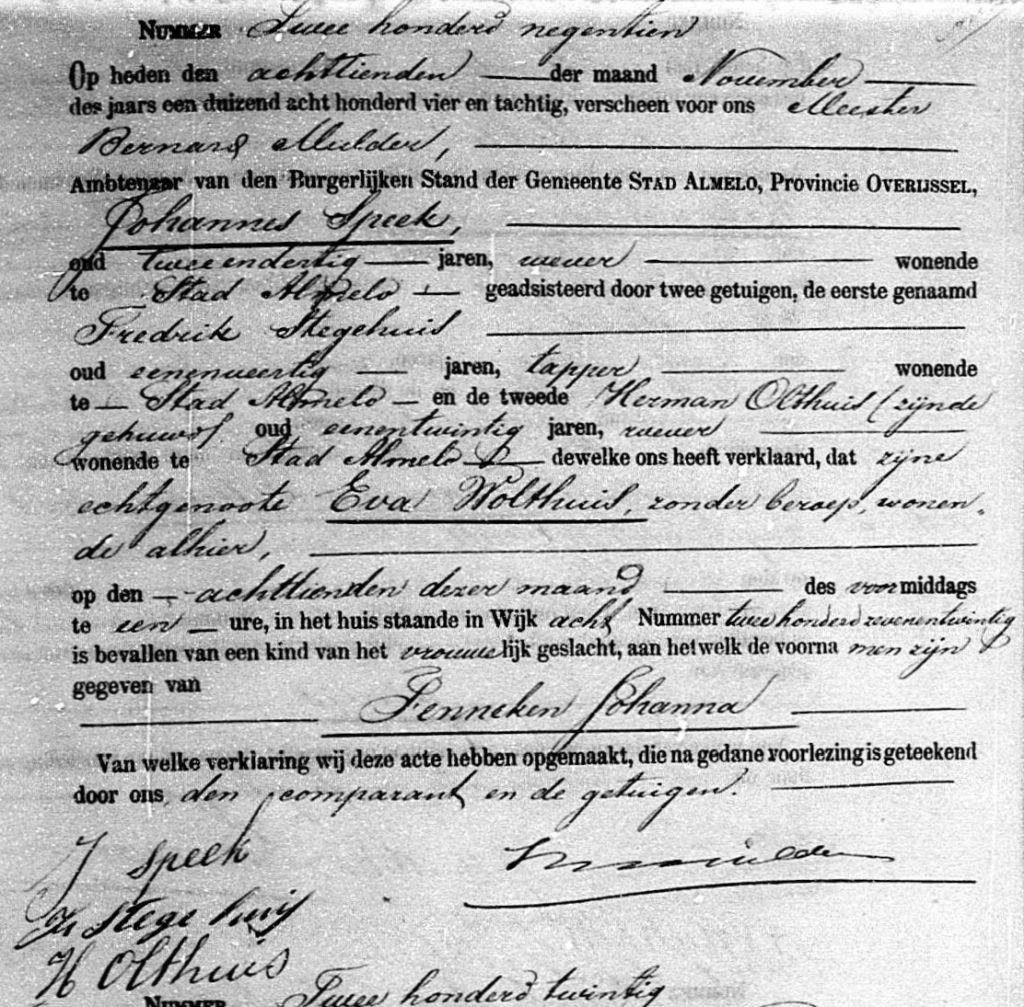 NUMMER Twee honderd negentien
Op heden den achttienden der maand November
des jaars een duizend acht honderd vier en tachtig, verscheen voor ons Meester
Bernard Mulder,
Ambtenaar van den Burgerlijken Stand der Gemeente STAD ALMELO, Provincie OVERIJSSEL,
Johannes Speek,
oud tweeendertig jaren, wever wonende
te Stad Almelo geadsisteerd door twee getuigen, de eerste genaamd
Fredrik Stegehuis
oud eenenveertig jaren, tapper wonende
te Stad Almelo en de tweede Herman Olthuis (zijnde
gehuwd) oud eenentwintig jaren, wever
wonende te Stad Almelo dewelke ons heeft verklaard, dat zijne
echtgenoote Eva Wolthuis, zonder beroep, wonen-
de alhier,
op den achttienden dezer maand des voormiddags
te een ure, in het huis staande in Wijk acht Nummer twee honderd zevenentwintig
is bevallen van een kind van het vrouwelijk geslacht, aan hetwelk de voorna men zijn
gegeven van
Fenneken Johanna
Van welke verklaring wij deze acte hebben opgemaakt, die na gedane voorlezing is geteekend
door ons, den comparant en de getuigen.
J Speek
Mulder
Stegehuis
H Olthuis
NUMMER Twee honderd twintig